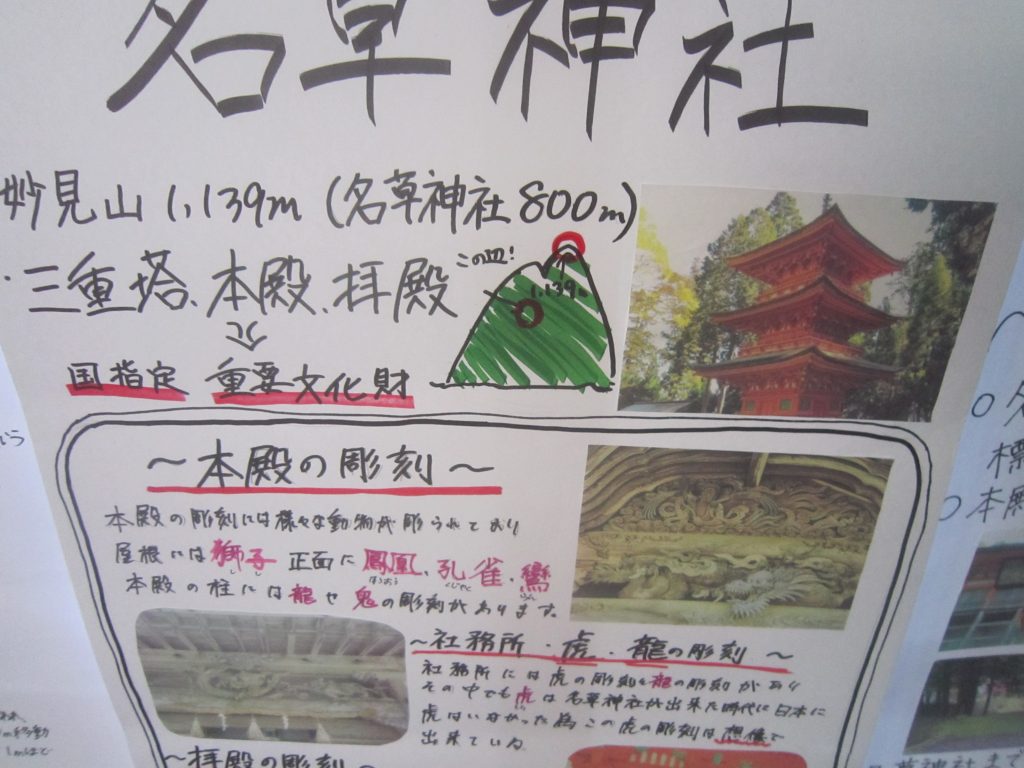 名草神社
妙見山 1,139m (名草神社 800m)
・三重塔、本殿、拝殿
この辺!
1,139m
国指定 重要文化財
～本殿の彫刻～
本殿の彫刻には様々な動物が彫られており
屋根には獅子 正面に鳳凰、孔雀、鸞
しし ほうおう くじゃく らん
本殿の柱には龍や鬼の彫刻があります。
～社務所・虎・龍の彫刻～
社務所には虎の彫刻と龍の彫刻があり
その中でも虎は名草神社が出来た時代に日本に
虎はいなかった為この虎の彫刻は想像で
出来ている
～拝殿の彫刻
○名
標
○本殿
草神社まで
の移動
1mほど